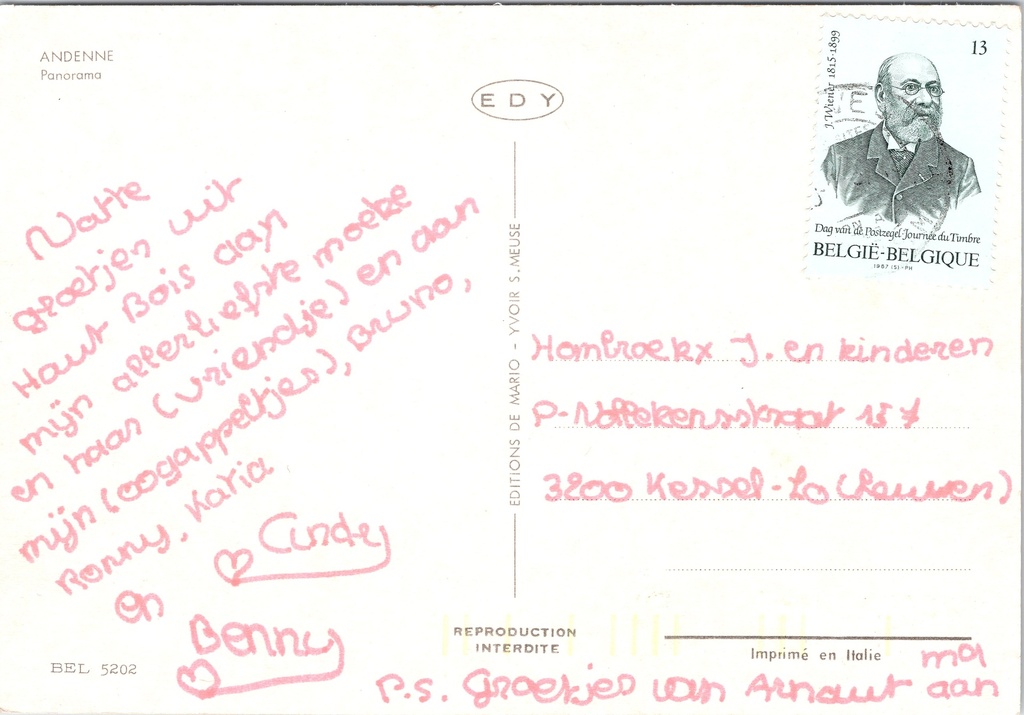 ANDENNE
Panorama
EDY
Natte
groetjes uit
Haut Bois aan
mijn allerliefste moeke
en haar (vriendje) en aan
mijn (oogappeltjes), Bruno,
Ronny, Katia
Cindy
en
Benny
BEL 5202
EDITIONS DE MARIO - YVOIR S. MEUSE
REPRODUCTION
INTERDITE
J. Wiener 1815-1899
13
Dag van de Postzegel-Journée du Timbre
BELGIË-BELGIQUE
1987 (5)-PH
Hombroekx J. en kinderen
P-Nöffekensstraat 157
3200 Kessel-Lo (Leuven)
Imprimé en Italie
P.S. Groetjes van Arnaut aan
ma